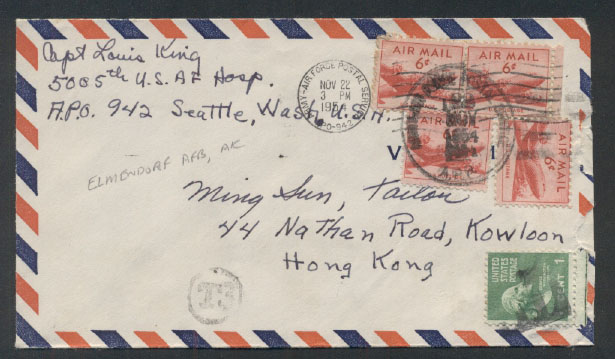 Capt Louis King
5005th U.S. AF Hosp.
A.P.O. 942 Seattle, Wash. U.S.A.
ARMY-AIR FORCE POSTAL SERVICE
NOV 22
3 PM
1954
APO-942
AIR MAIL
6¢
AIR MAIL
6¢
AIR MAIL
AIR MAIL
6¢
ELMENDORF AFB, AK
V
Ming Sun, Tailor
44 Nathan Road, Kowloon
Hong Kong
UNITED STATES POSTAGE
CENT 1